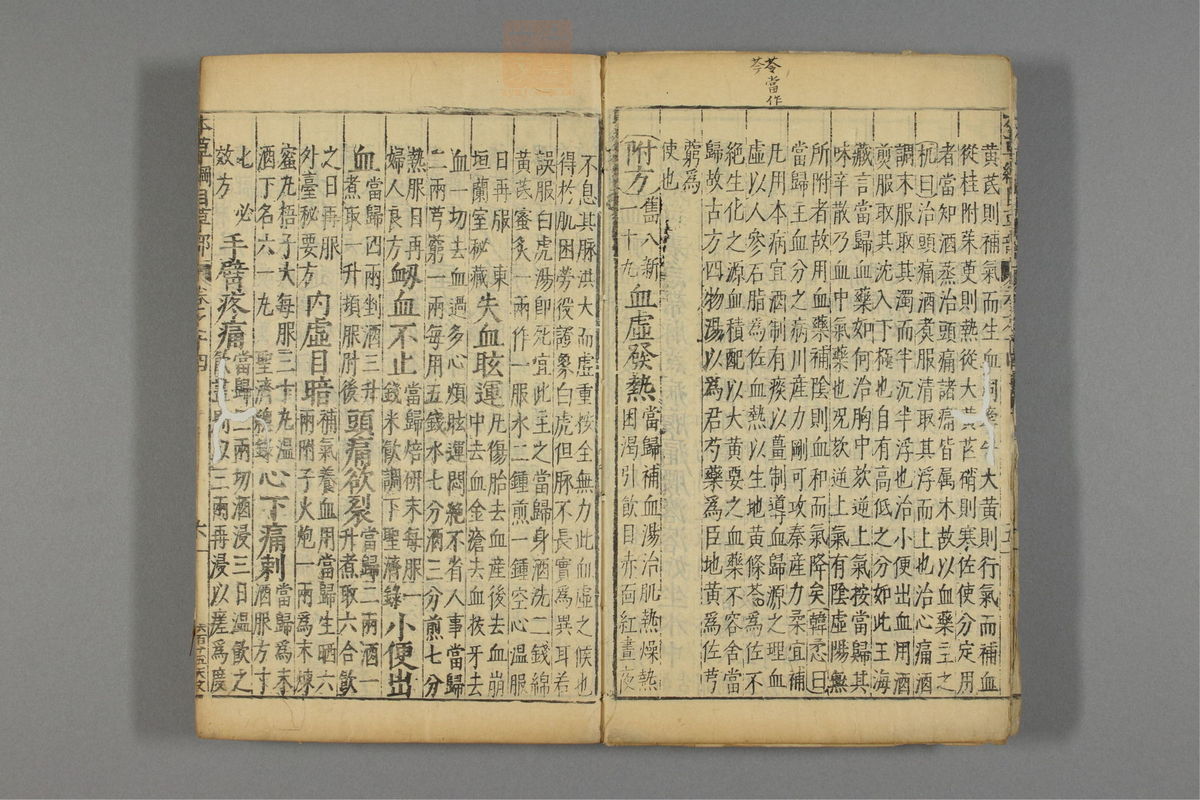 苓當作
芩
黃芪則補氣而生血同牽牛大黃則行氣而補血
從桂附茱萸則熱從大黃芒硝則寒佐使分定用
者當知酒蒸治頭痛諸痛皆属木故以血藥主之
机曰治頭痛酒煑服清取其浮而上也治心痛酒
調末服取其濁而半沉半浮也治小便出血用酒
煎服取其沈入下極也自有高低之分如此王海
藏言當歸血藥如何治胸中欬逆上氣按當歸其
味辛散乃血中氣藥也况欬逆上氣有陰虛陽無
所附者故用血藥補陰則血和而氣降矣韓𢘅曰
當歸主血分之病川産力剛可攻秦産力柔宜補
凡用本病宜酒制有痰以薑制導血歸源之理血
虛以人參石脂為佐血熱以生地黃條苓為佐不
絕生化之源血積配以大黃要之血藥不容舍當
歸故古方四物湯以為君芍藥為臣地黃為佐芎
藭為
使也
附方 舊八新一十九 血虛發熱 當歸補血湯治肌熱燥熱
困渴引飲目赤面紅晝夜
不息其脉洪大而虛重按全無力此血虛之候也
得於肌困勞役證象白虎但脉不長實為異耳若
誤服白虎湯卽死宜此主之當歸身酒洗二錢綿
黃芪蜜炙一兩作一服水二鍾煎一鍾空心溫服
日再服 東
垣蘭室秘藏 失血眩運 凡傷胎去血産後去血崩
中去血金瘡去血拔牙去
血一切去血過多心煩眩運悶絕不省人事當歸
二兩芎藭一兩每用五錢水七分酒三分煎七分
熱服日再
婦人良方 衂血不止 當歸焙研末每服一
錢米飲調下聖濟錄 小便出
血 當歸四兩剉酒三升
煮取一升頻服肘後 頭痛欲裂 當歸二兩酒一
升煮取六合飲
之日再服
外臺秘要方 内虛目暗 補氣養血用當歸生晒六
兩附子火炮一兩為末煉
蜜丸梧子大每服三十丸溫
酒下名六一丸 聖濟總錄 心下痛刺 當歸為末
酒服方寸
匕 必
效方 手臂疼痛 當歸三兩切酒浸三日溫飲之
飲盡別取三兩再浸以瘥為度